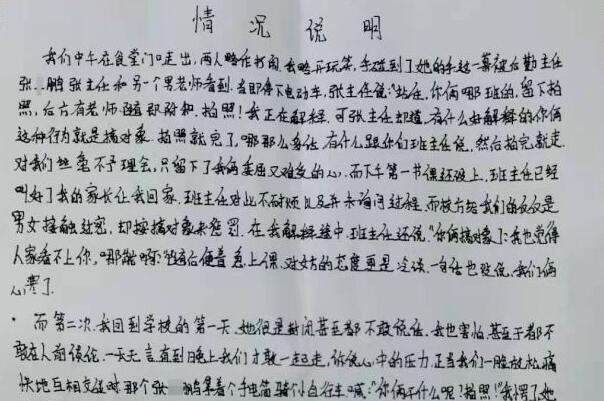 情况说明
我们中午在食堂门口走出,两人略作打闹,我略开玩笑,手碰到了她的手这一幕被后勤主任
张鹏张主任和另一个男老师看到.当即停下电动车,张主任说:"站住,你俩哪班的,留下拍
照,后方有老师随即附和,拍照!我正在解释,可张主任却道,有什么好解释的你俩
这种行为就是搞对象.拍照就完了,哪那么多话,有什么跟你们班主任说,然后拍完就走.
对我们丝毫不予理会,只留下了我俩委屈又难受的心.而下午第一节课还没上,班主任已经
叫好了我的家长让我回家.班主任对此不耐烦以及并未询问过程.而校方给我们的仅仅是
男女接触过密,却按搞对象来惩罚.在我解释途中,班主任还说"你俩搞对象了?我也觉得
人家看不上你,哪能啊"随后便着急上课,对女方的态度更是冷谈.一句话也没说,我们俩
心寒了.
而第二次,我回到学校的第一天,她很是封闭甚至都不敢说话,我也害怕,甚至于都不
敢在人前谈论.一天无言直到晚上我们才敢一起走,诉说心中的压力.正当我们一脸放松痛
快地互相交谈时,那个张鹏拿着个手电筒骑个小自行车喊:"你俩干什么呢!拍照!"我愣了她